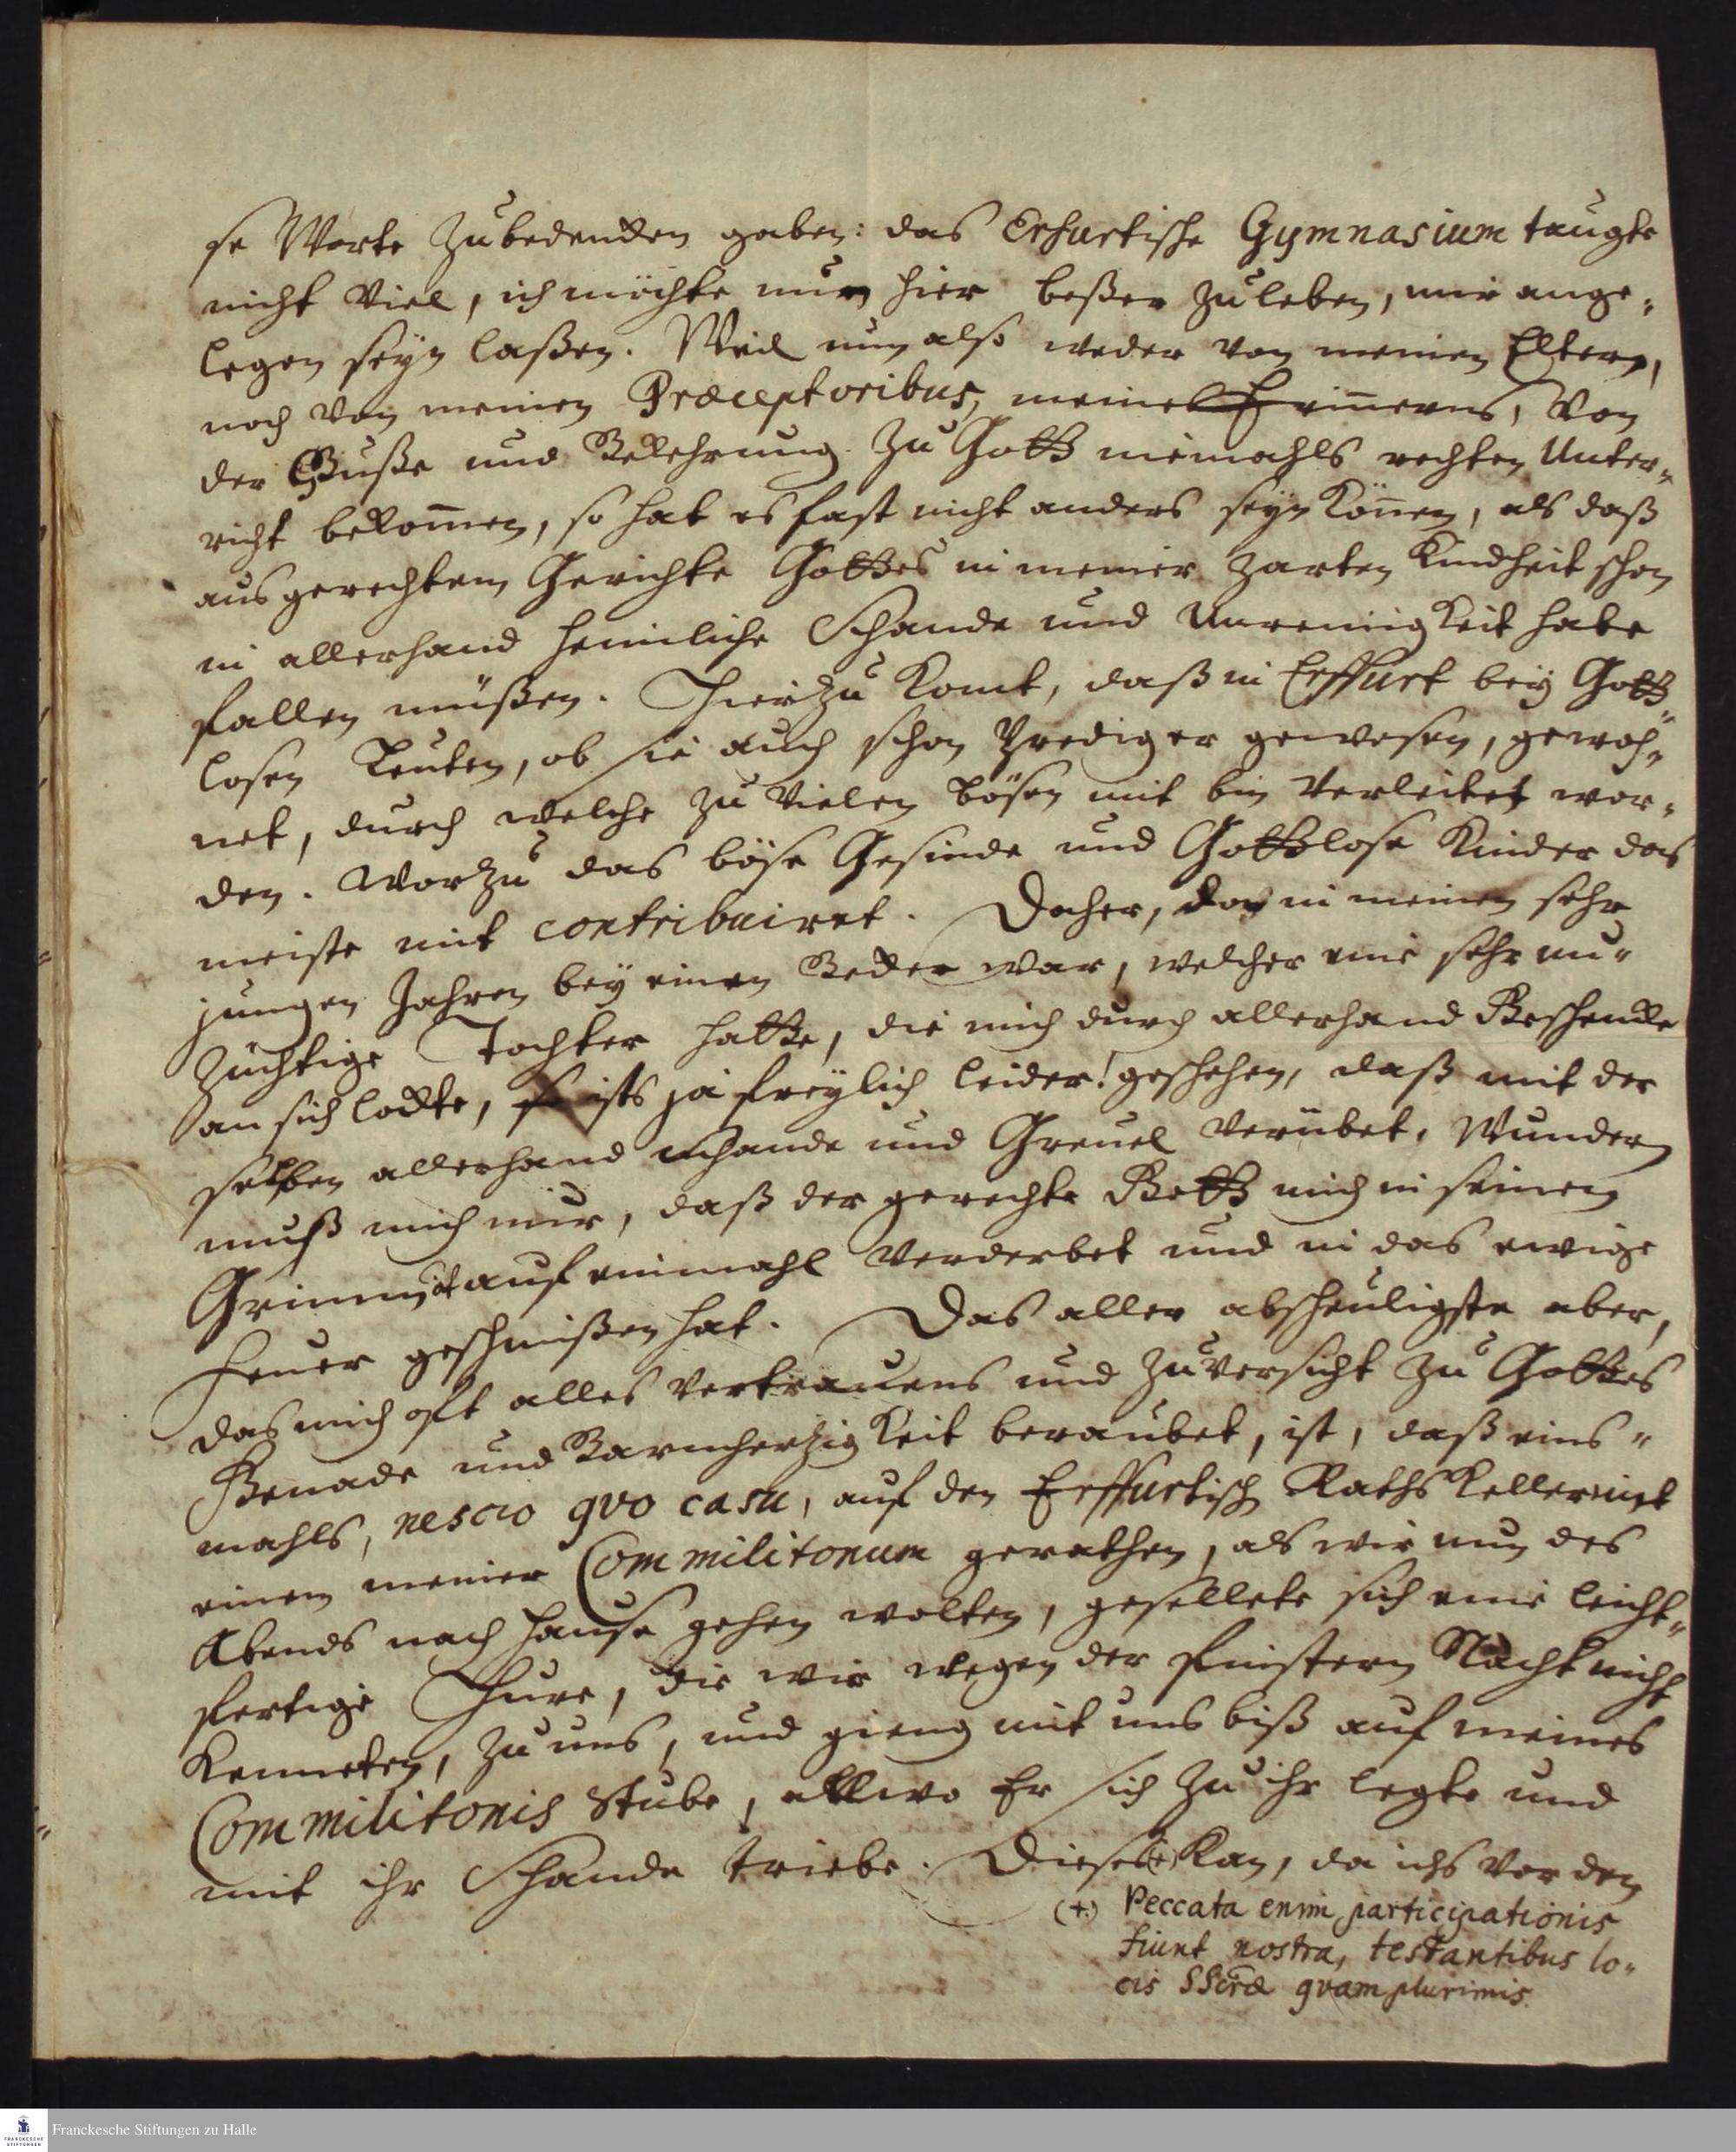 se Worte zubedencken gaben: das Erfurtische Gymnasium taugte
nicht viel, ich möchte nun hier beßer zuleben, mir ange-
legen seyn laßen. Weil nun also weder von meinen Eltern,
noch von meinen Præceptoribus, meines Erinnerns, von
der Buße und Bekehrung zu Gott niemahls rechten Unter-
richt bekom̄en, so hat es fast nicht anders seyn kön̄en, als daß
aus gerechtem Gerichte Gottes in meiner zarten Kindheit schon
in allerhand heimliche Schande und Unreinigkeit habe
fallen müßen. Hierzu komt, daß in Erffurt bey Gott-
losen Leuten, ob sie auch schon Prediger gewesen, gewoh-
net, durch welche zu vielen bösen mit bin verleitet wor-
den. Worzu das böse Gesinde und Gottlose Kinder das
meiste mit contribuiret. Daher, da in meinen sehr
jungen Jahren bey einen Becker war, welcher eine sehr un-
züchtige Tochter hatte, die mich durch allerhand Geschencke
an sich lockte, so ists ja freylich leider! geschehen, daß mit der
selben allerhand Schande und Greuel verübet. Wundern
muß mich nur, daß der gerechte Gott mich in seinem
Grimm nicht auf einmahl verderbet und in das ewige
Feuer geschmißen hat. Das aller abscheuligste aber,
das mich oft alles Vertrauens und Zuversicht zu Gottes
Genade und Barmherzigkeit beraubet, ist, daß eins-
mahls, nescio qvo casu, auf den Erffurtisch Raths Keller mit
einem meiner Commilitonum gerathen, als wir nun des
Abends nach Hause gehen wolten, gesellete sich eine leicht-
fertige Hure, die wir wegen der finstern Nacht nicht
kenneten, zu uns, und gieng mit uns biß auf meines
Commilitonis Stube, allwo Er sich zu ihr legte und
mit ihr Schande triebe. Dieses (+) kan, da ichs vor den
(+) Peccata enim participationis
fiunt nostra, testantibus lo-
cis SScræ qvam plurimis.
Franckesche Stiftungen zu Halle
FRANCKESCHE
STIFTUNGEN